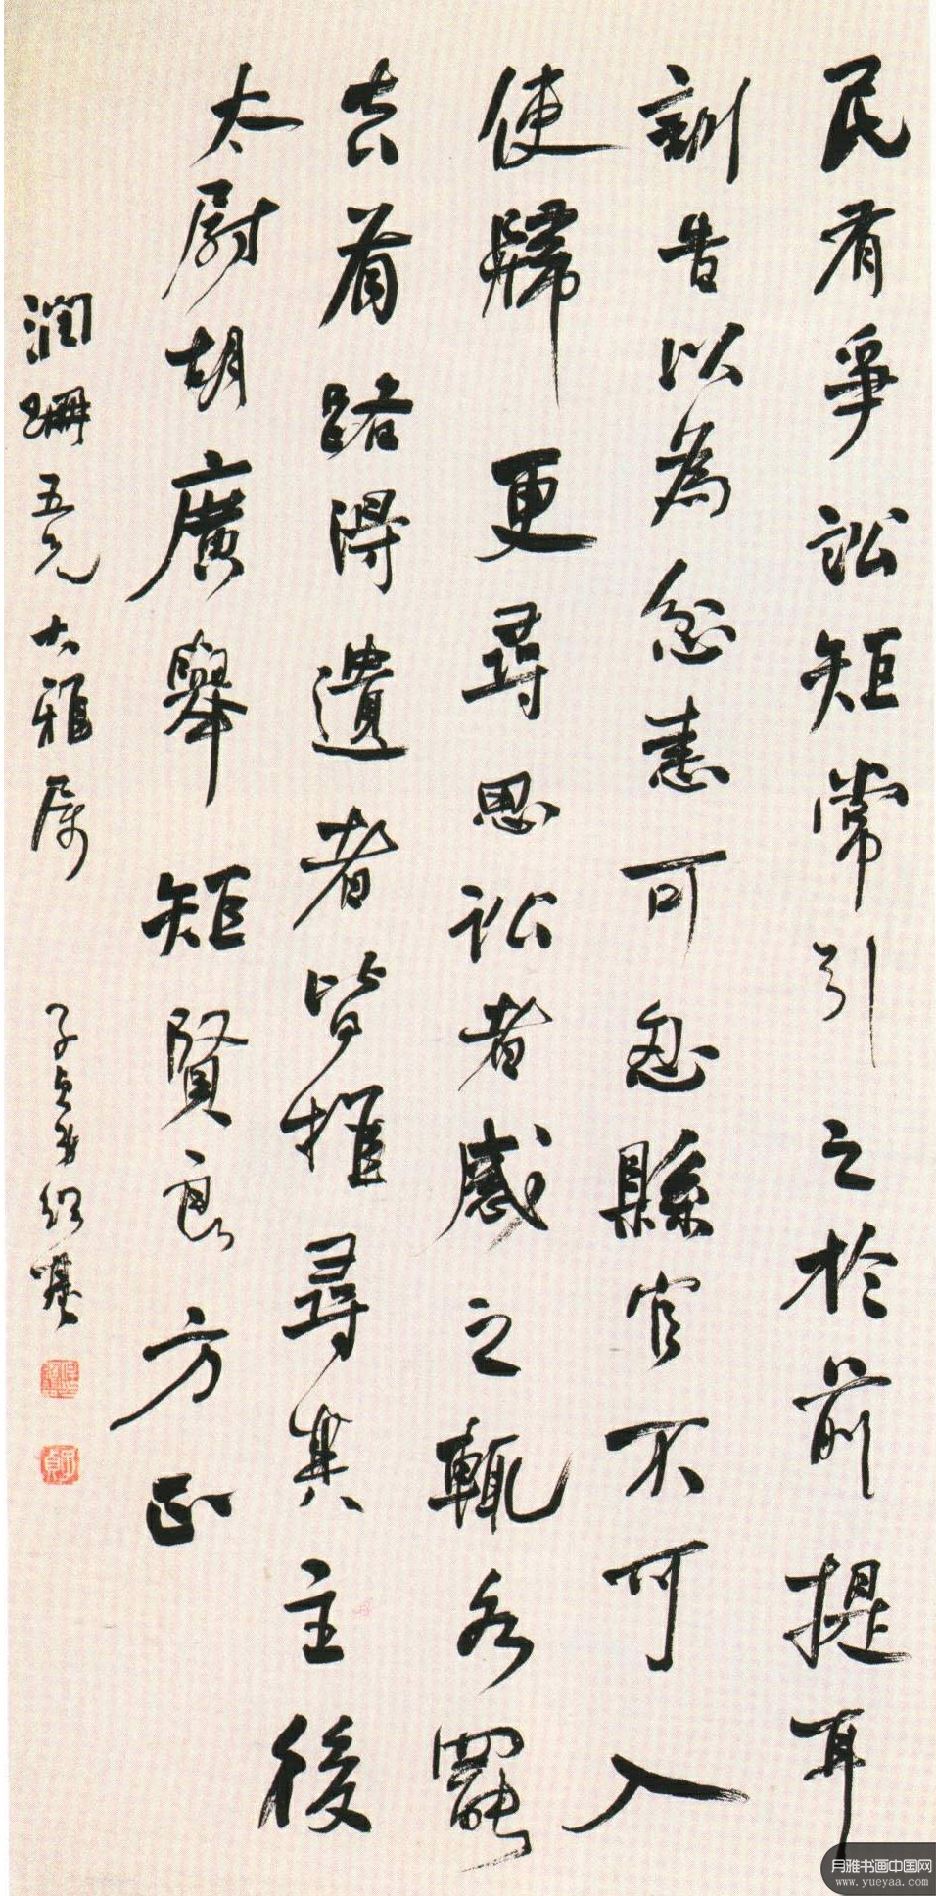 民有爭訟矩常引之於前提耳
訓告以為忿恚可忍縣官不可入
使歸更尋思訟者感之輒各罷
去有路得遺者皆推尋其主後
太尉胡廣舉矩賢良方正
潤珊五兄大雅属
子貞弟紹基
月雅书画中国网
www.yueyaa.com